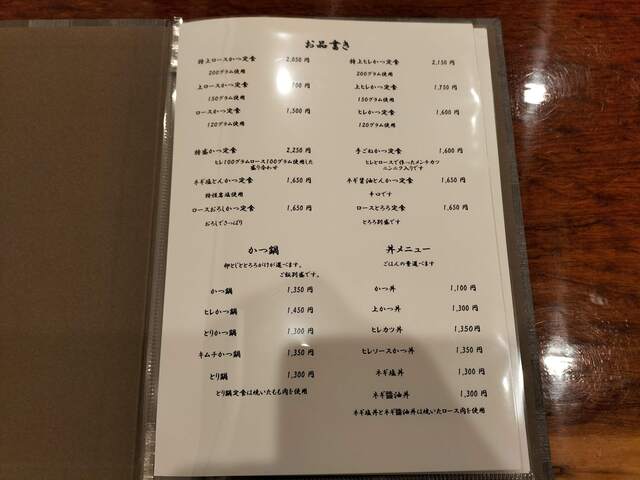 お品書き
特上ロースかつ定食 2,050 円
200グラム使用
上ロースかつ定食 700 円
150グラム使用
ロースかつ定食 1,500 円
120グラム使用
特盛かつ定食 2,250 円
ヒレ100グラムロース100グラム使用した
盛り合わせ
ネギ塩とんかつ定食 1,650 円
特性岩塩使用
ロースおろしかつ定食 1,650 円
おろしでさっぱり
特上ヒレかつ定食 2,150 円
200グラム使用
上ヒレかつ定食 1,750 円
150グラム使用
ヒレかつ定食 1,600 円
120グラム使用
手ごねかつ定食 1,600 円
ヒレとロースで作ったメンチカツ
ニンニク入りです
ネギ醤油とんかつ定食 1,650 円
辛口です
ロースとろろ定食 1,650 円
とろろ別盛です
かつ鍋
卵とじととろろがけが選べます。
ご飯別盛です。
かつ鍋 1,350 円
ヒレかつ鍋 1,450 円
とりかつ鍋 1,300 円
キムチかつ鍋 1,350 円
とり鍋 1,300 円
とり鍋定食は焼いたもも肉を使用
丼メニュー
ごはんの量選べます
かつ丼 1,100 円
上かつ丼 1,300 円
ヒレカツ丼 1,350円
ヒレソースかつ丼 1,350 円
ネギ塩丼 1,300 円
ネギ醤油丼 1,300 円
ネギ塩丼とネギ醤油丼は焼いたロース肉を使用